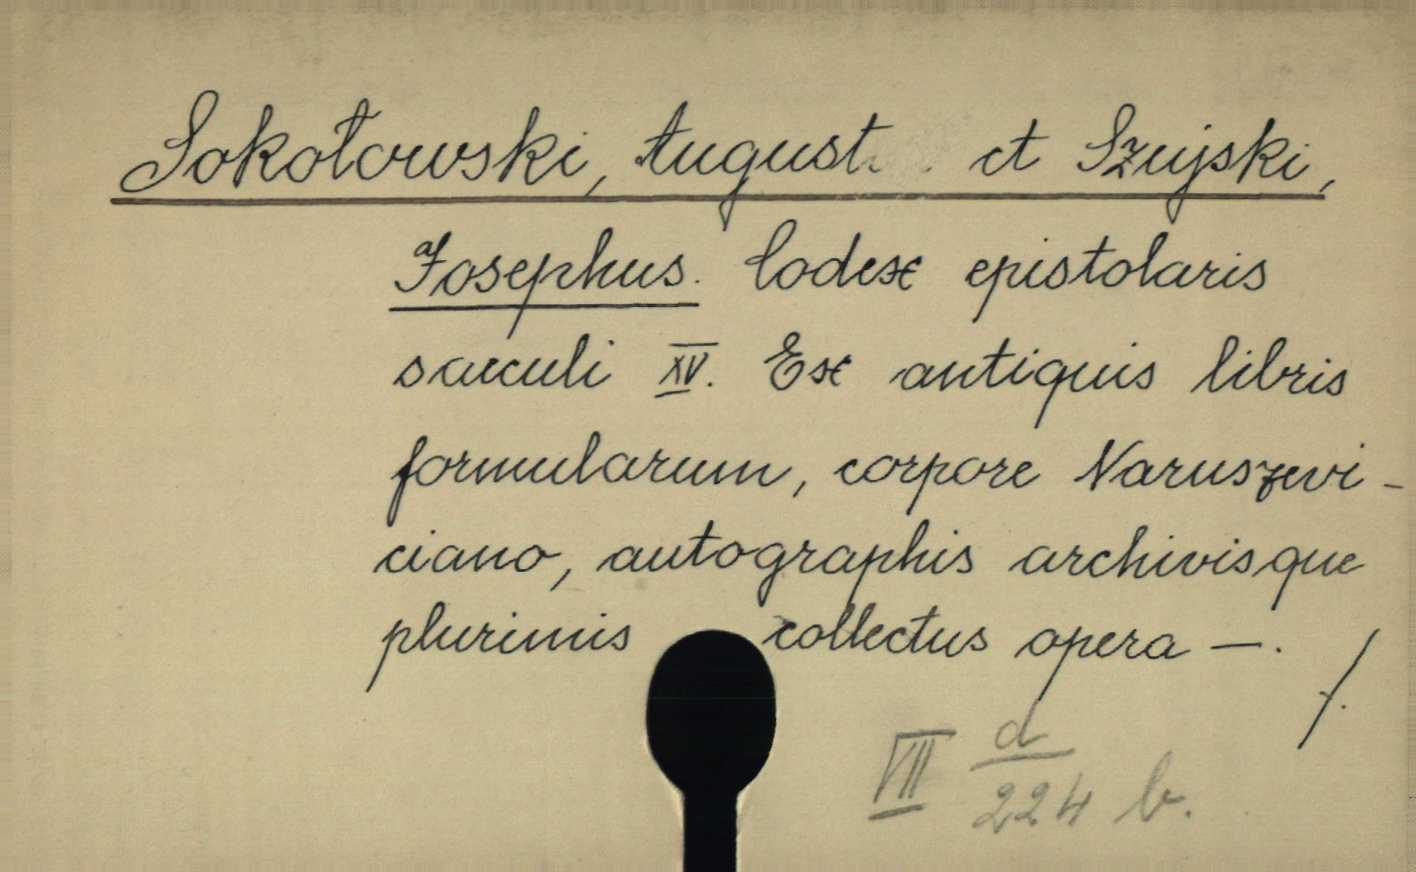 Sokołowski, August. et Szujski,
Josephus. Codex epistolaris
saeculi XV. Ex antiquis libris
formularum, corpore Naruszevi-
ciano, autographis archivisque
plurimis collectus opera —.
/.
VII d/224 b.